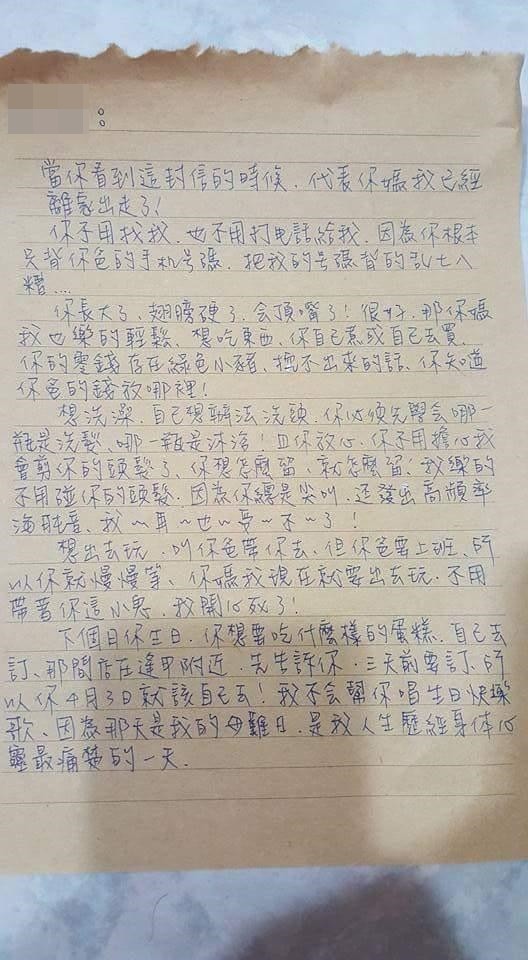 :
當你看到這封信的時候．代表你媽我已經
離家出走了！
你不用找我．也不用打电話給我．因為你根本
只背你爸的手机号碼．把我的号碼背的乱七八
糟....
你長大了、翅膀硬了．会頂嘴了！很好．那你媽
我也樂的輕鬆、想吃東西、你自己煮或自己去買．
你的零錢存在綠色小豬、挖不出來的話、你知道
你爸的錢放哪裡！
想洗澡．自己想辦法洗頭．你必須先學会哪一
瓶是洗髮、哪一瓶是沐浴！且你放心．你不用擔心我
會剪你的頭髮了、你想怎麼留．就怎麼留！我樂的
不用碰你的頭髮．因為你總是尖叫．还發出高頻率
海豚音、我～耳～也～受～不～了！
想出去玩．叫你爸帶你去、但你爸要上班、所
以你就慢慢等、你媽我現在就要出去玩．不用
帶著你這小鬼．我開心死了！
下個日你生日．你想要吃什麼樣的蛋糕．自己去
訂、那間店在逢甲附近．先告訴你．三天前要訂、所
以你4月3日就該自己去！我不会幫你唱生日快樂
歌、因為那天是我的母難日．是我人生歷經身体心
靈最痛楚的一天．